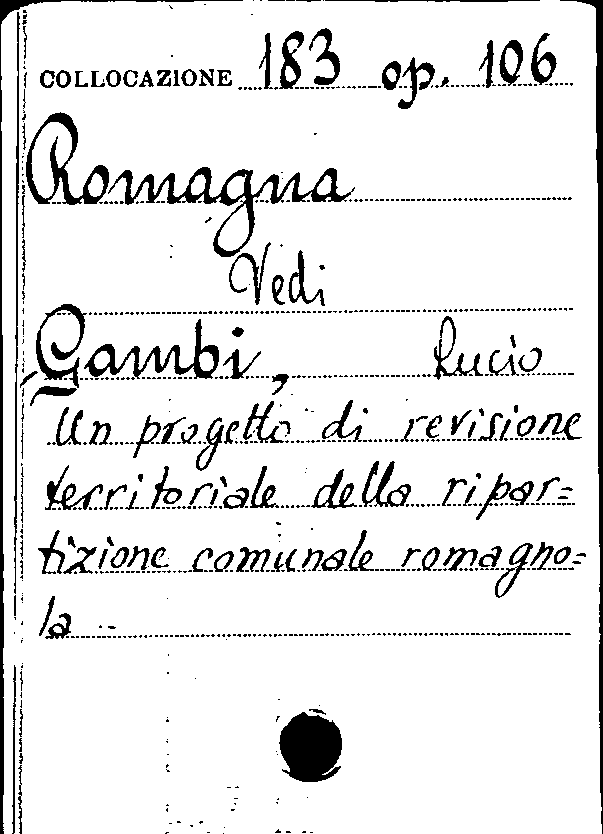 COLLOCAZIONE 183 op. 106
Romagna
Vedi
Gambi, Lucio
Un progetto di revisione
territoriale della ripar=
tizione comunale romagno=
la